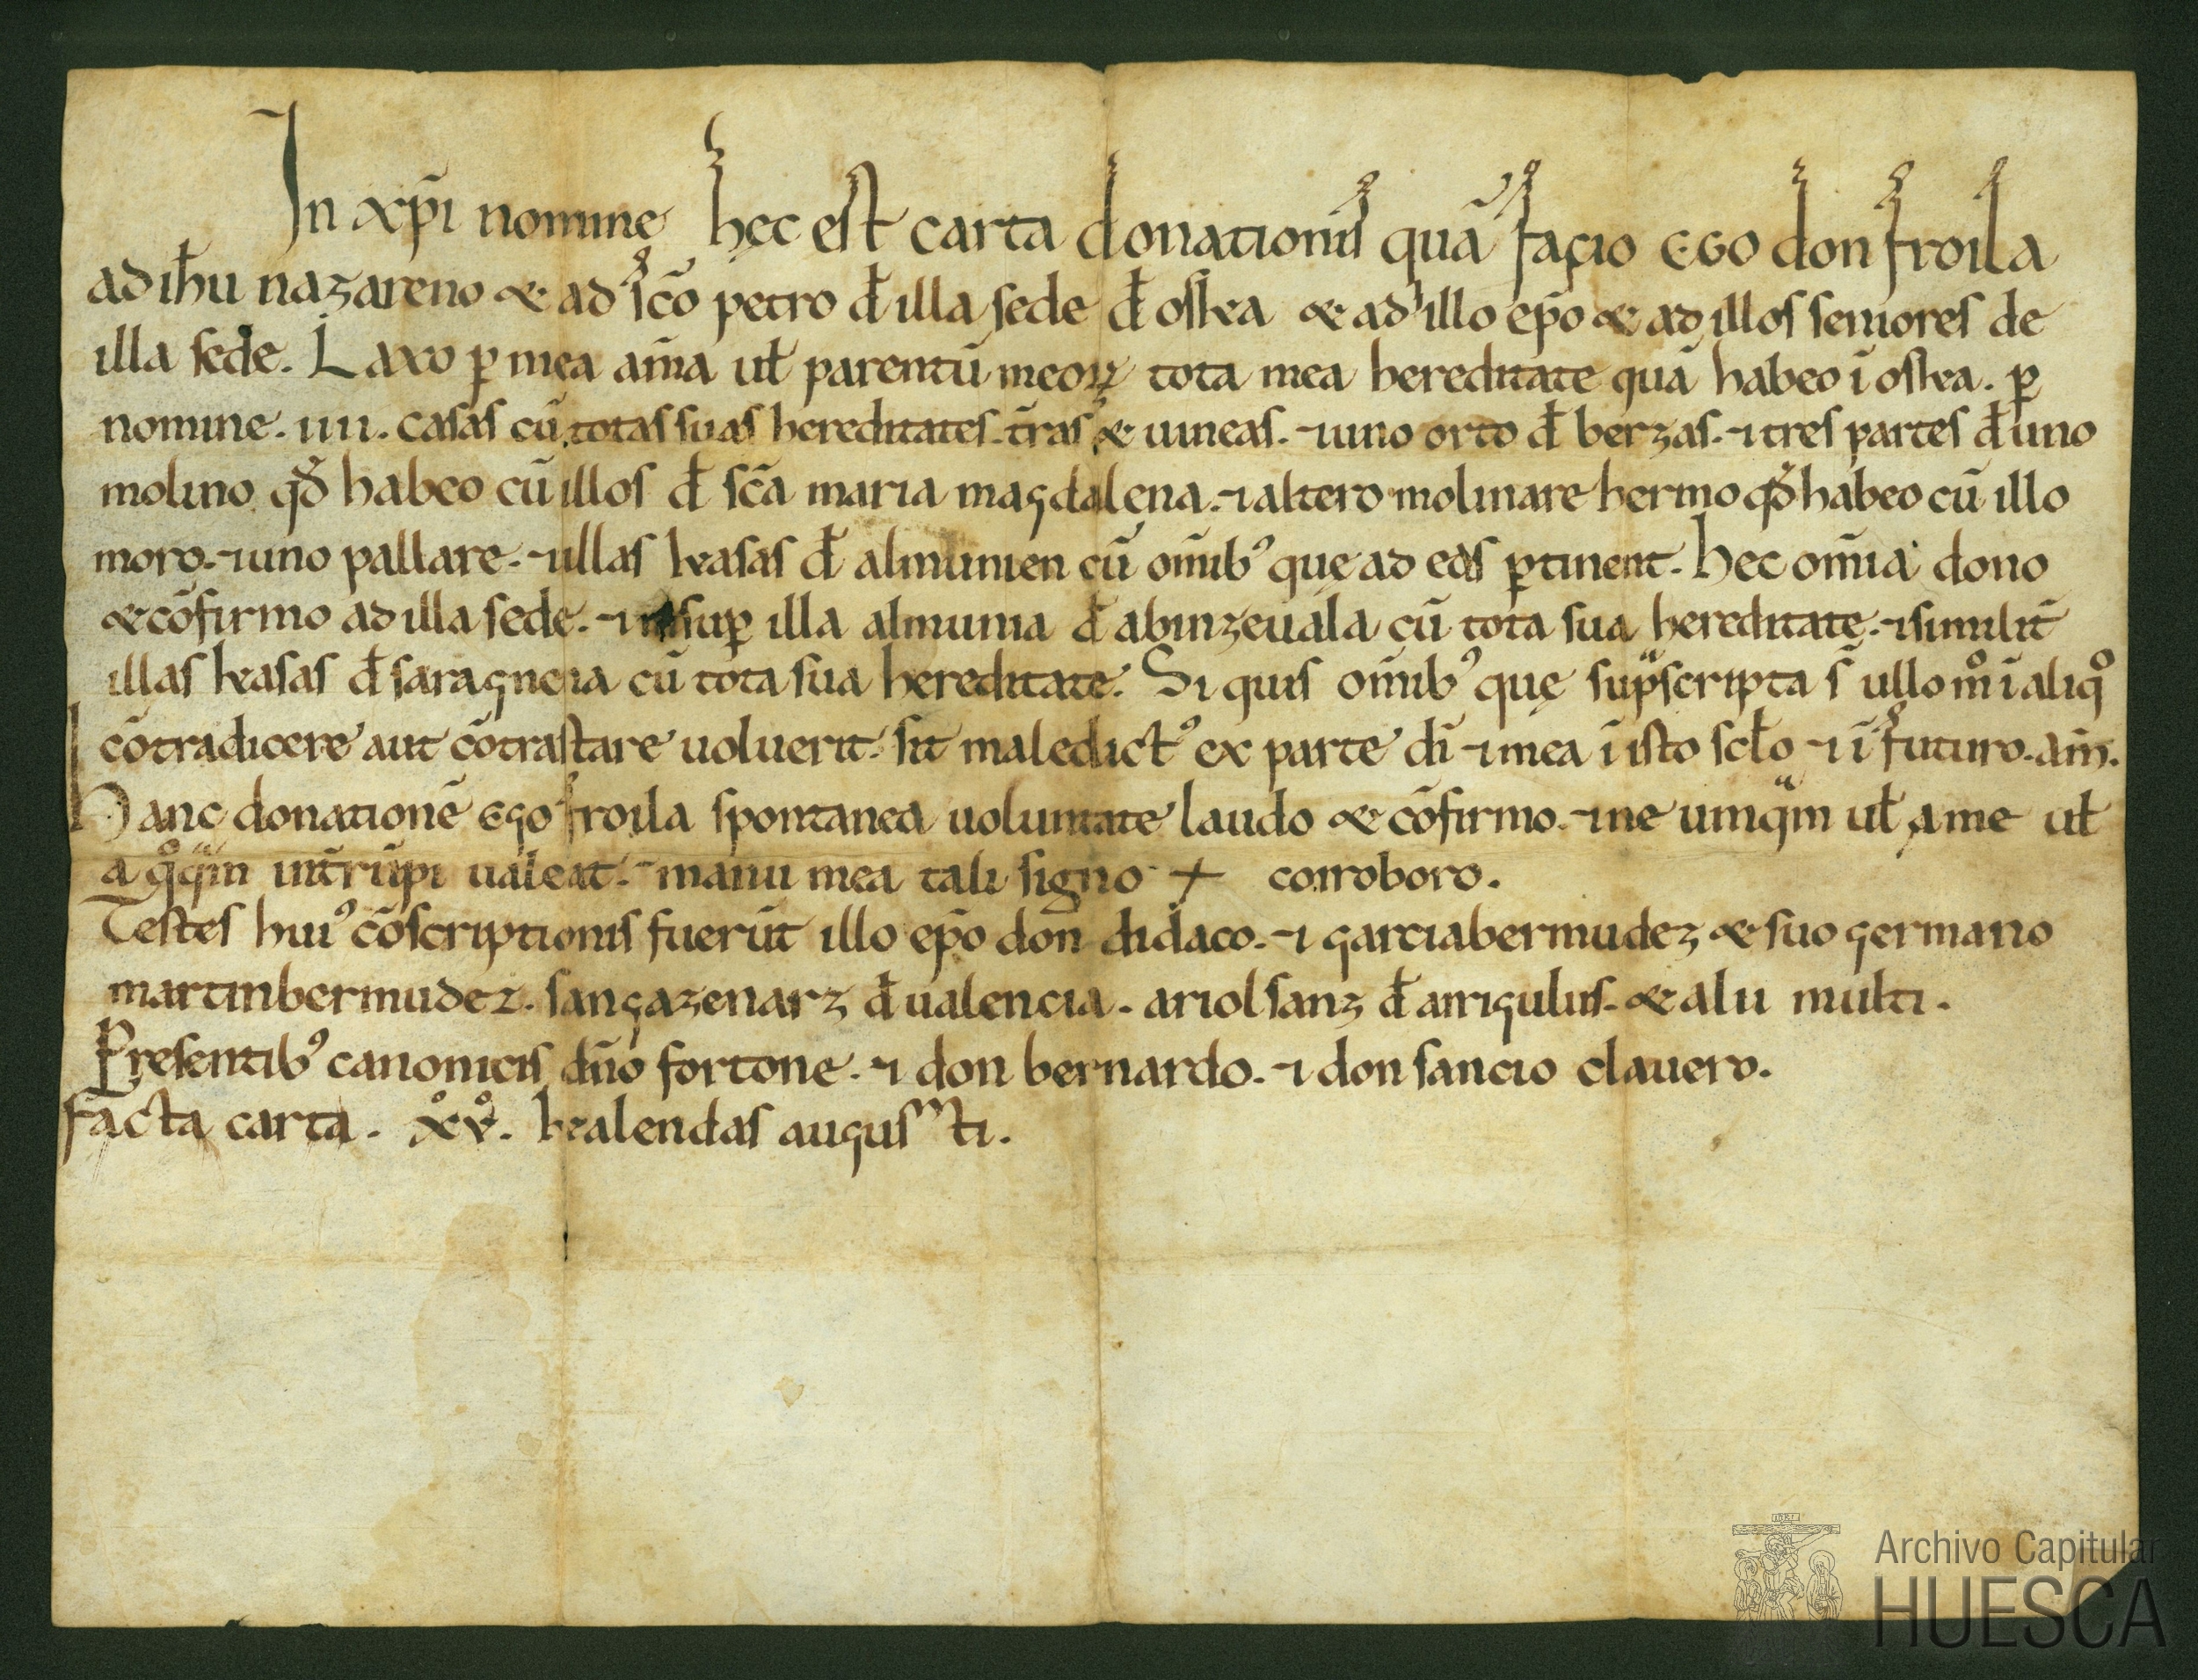 In xp̄i nomine hęc est carta donationis quā facio ego don froila
ad ih̄u nazareno & ad sc̄o petro đ illa sede đ oska & ad illo ep̄o & ad illos seniores de
illa sede. Laxo ꝑ mea am̄a uł parentū meoꝝ tota mea hereditate quā habeo ī oska. ꝑ
nomine. iiii. casas cū totas suas hereditates. t̄ras & uineas. ⁊ uno orto đ berzas. ⁊ tres partes đ uno
molino qđ habeo cū illos đ sc̄a maria magdalena. ⁊ altero molinare hermo qđ habeo cū illo
moro. ⁊ uno pallare. ⁊ illas kasas đ almunien cū om̄ibꝰ quę ad eas ꝑtinent. hec om̄ia dono
& cōfirmo ad illa sede. ⁊ insuꝑ illa almunia đ abinzeuala cū tota sua hereditate. ⁊ similit̄
illas kasas đ saragnena cū tota sua hereditate. Si quis om̄ibꝰ quę sup̃scripta s̄ ullo m̊ ī aliq̊
cōtradicere aut cōtrastare uoluerit. sit maledictꝰ ex parte dī ⁊ mea ī isto scł̄o ⁊ ī futuro. am̄.
Hanc donationē ego froila spontanea uoluntate laudo & cōfirmo. ⁊ ne umq̃m uł a me uł
a q̊q̃m int̄rūpi ualeat. ⁊ manu mea tali signo + corroboro.
Testes huiꝰ cōscriptionis fuerūt illo ep̄o don didaco. ⁊ garciabermudez & suo germano
martinbermudez. sangazenarz đ ualencia. ariolsanz đ arrigulis. & alii multi.
Presentibꝰ canonicis dn̄o fortone. ⁊ don bernardo. ⁊ don sancio clauero.
facta carta. x̊v̊. kalendas augusti.
Archivo Capitular
HUESCA